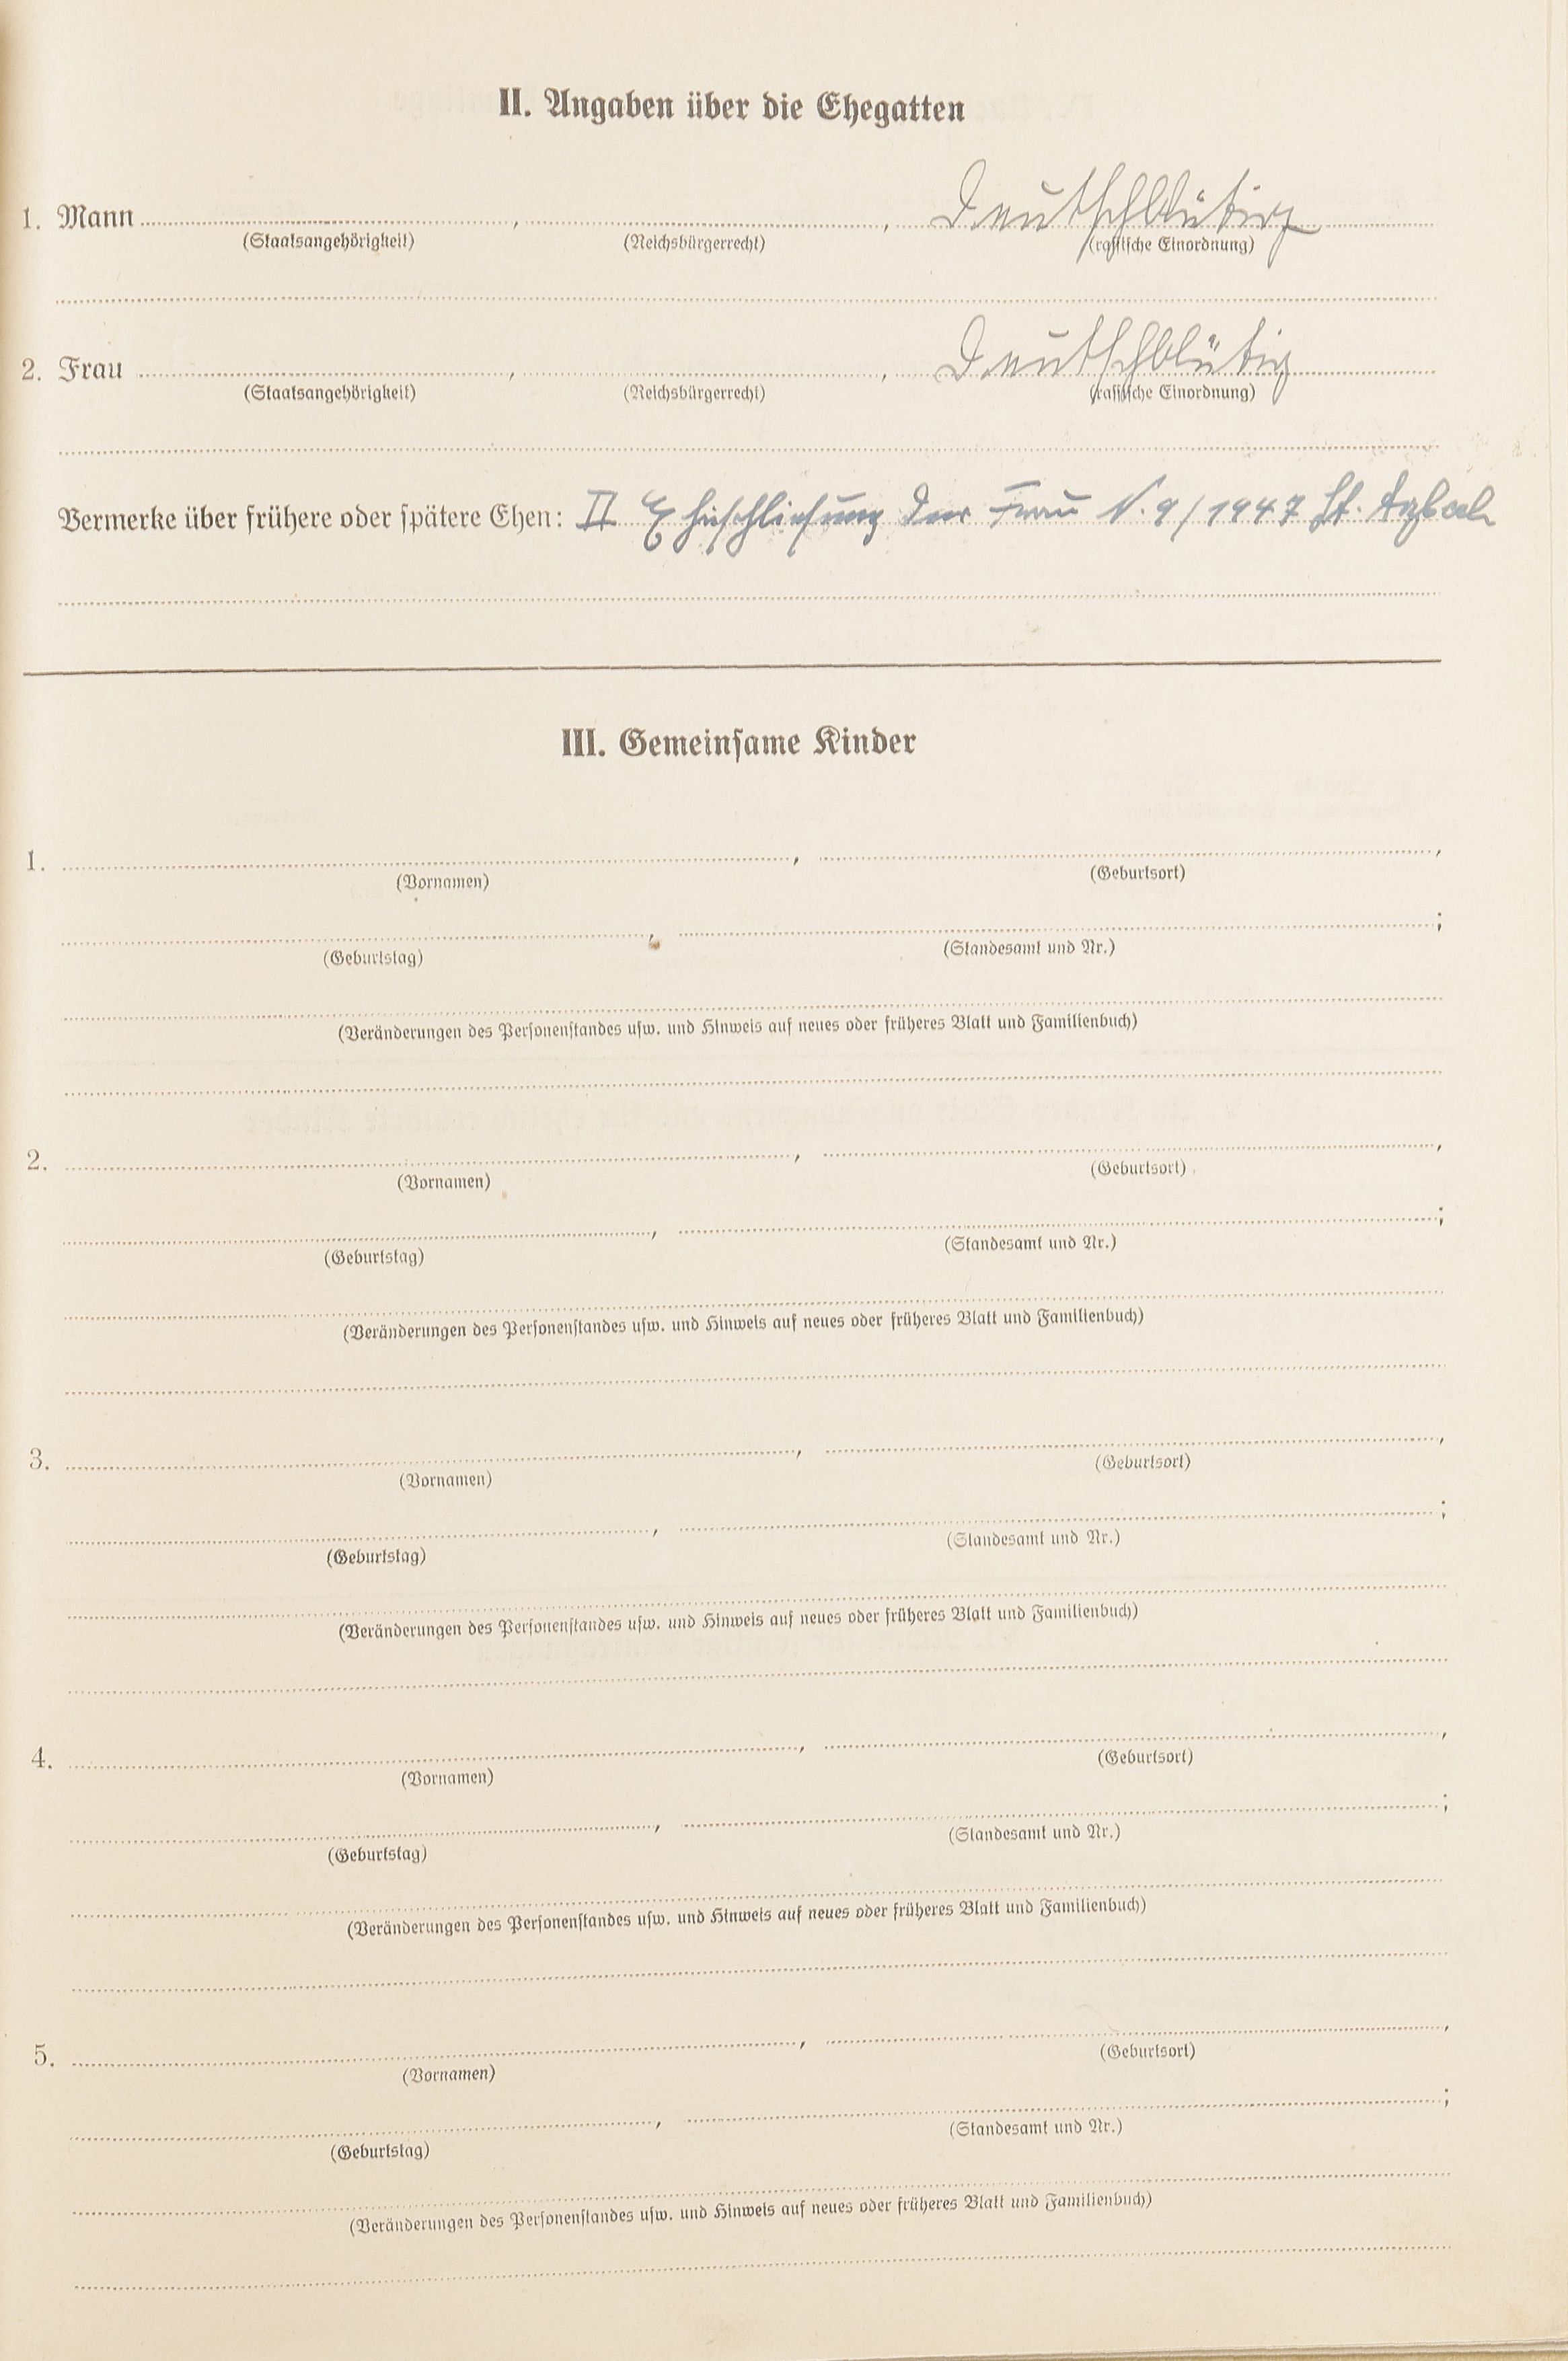 II. Angaben über die Ehegatten
1. Mann , , Deutschblütig
(Staatsangehörigkeit) (Reichsbürgerrecht) (rassische Einordnung)
2. Frau , , Deutschblütig
(Staatsangehörigkeit) (Reichsbürgerrecht) (rassische Einordnung)
Vermerke über frühere oder spätere Ehen: II Eheschließung der Frau N. 9/1947 St.
III. Gemeinsame Kinder
1. , ,
(Vornamen) (Geburtsort)
, ;
(Geburtstag) (Standesamt und Nr.)
(Veränderungen des Personenstandes usw. und Hinweis auf neues oder früheres Blatt und Familienbuch)
2. , ,
(Vornamen) (Geburtsort)
, ;
(Geburtstag) (Standesamt und Nr.)
(Veränderungen des Personenstandes usw. und Hinweis auf neues oder früheres Blatt und Familienbuch)
3. , ,
(Vornamen) (Geburtsort)
, ;
(Geburtstag) (Standesamt und Nr.)
(Veränderungen des Personenstandes usw. und Hinweis auf neues oder früheres Blatt und Familienbuch)
4. , ,
(Vornamen) (Geburtsort)
, ;
(Geburtstag) (Standesamt und Nr.)
(Veränderungen des Personenstandes usw. und Hinweis auf neues oder früheres Blatt und Familienbuch)
5. , ,
(Vornamen) (Geburtsort)
, ;
(Geburtstag) (Standesamt und Nr.)
(Veränderungen des Personenstandes usw. und Hinweis auf neues oder früheres Blatt und Familienbuch)